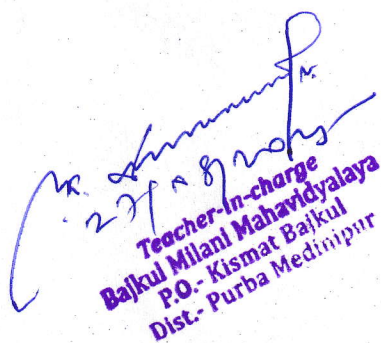 Teacher-in-charge
Bajkul Milani Mahavidyalaya
P.O.- Kismat Bajkul
Dist.- Purba Medinipur